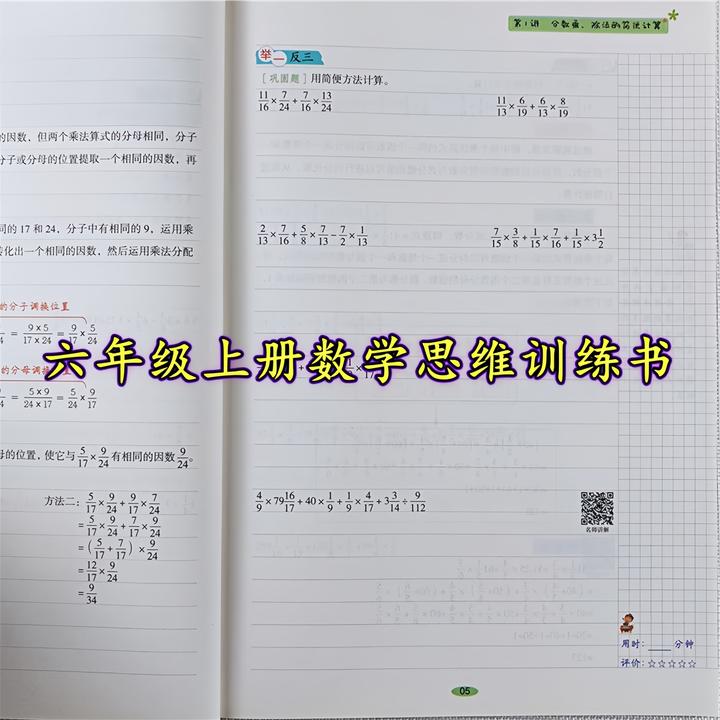 的因数，但两个乘法算式的分母相同，分子
分子或分母的位置提取一个相同的因数，再
同的 17 和 24，分子中有相同的 9，运用乘
转化出一个相同的因数，然后运用乘法分配
的分子调换位置
4 = 9×5/17×24 = 9/17 × 5/24
的分母调换
4 = 5×9/24×17 = 5/24 × 9/17
母的位置，使它与 5/17 × 9/24 有相同的因数 9/24。
方法二：5/17 × 9/24 + 9/17 × 7/24
= 5/17 × 9/24 + 7/17 × 9/24
= (5/17 + 7/17) × 9/24
= 12/17 × 9/24
= 9/34
第1讲 分数乘、除法的简便计算
举一反三
[巩固题] 用简便方法计算。
11/16 × 7/24 + 7/16 × 13/24
11/13 × 6/19 + 6/13 × 8/19
2/13 × 7/16 + 5/8 × 7/13 − 7/2 × 1/13
7/15 × 3/8 + 1/15 × 7/16 + 1/15 × 3 1/2
六年级上册数学思维训练书
4/9 × 79 16/17 + 40 × 1/9 + 1/9 × 4/17 + 3 3/14 ÷ 9/112
名师讲解
用时：____分钟
评价：☆☆☆☆☆
05